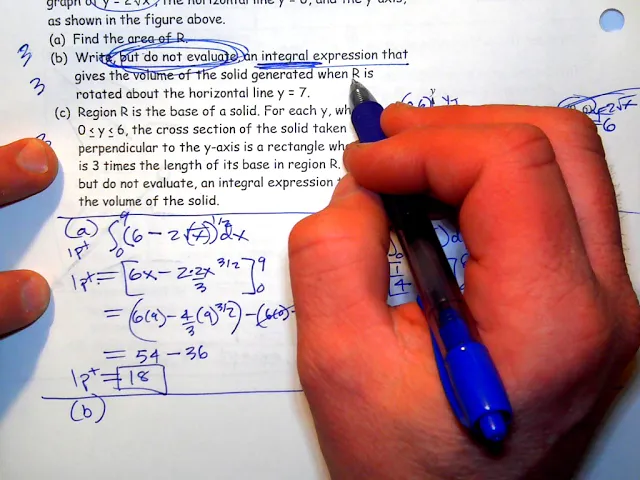 graph of y = 2√x, the horizontal line y = 6, and the y-axis,
as shown in the figure above.
(a) Find the area of R.
3 (b) Write, but do not evaluate, an integral expression that
gives the volume of the solid generated when R is
3 rotated about the horizontal line y = 7.
(c) Region R is the base of a solid. For each y, wh
0 ≤ y ≤ 6, the cross section of the solid taken
perpendicular to the y-axis is a rectangle wh
is 3 times the length of its base in region R.
but do not evaluate, an integral expression
the volume of the solid.
(a) ∫₀⁹ (6 − 2√(x))^1/2 dx
1pt
1pt: = [6x − 2·2x^3/2 / 3]₀⁹
= (6(9) − 4/3 (9)^3/2) − (6(0) =
= 54 − 36
1pt = 18
(b)
y
=2√x
6
1
4